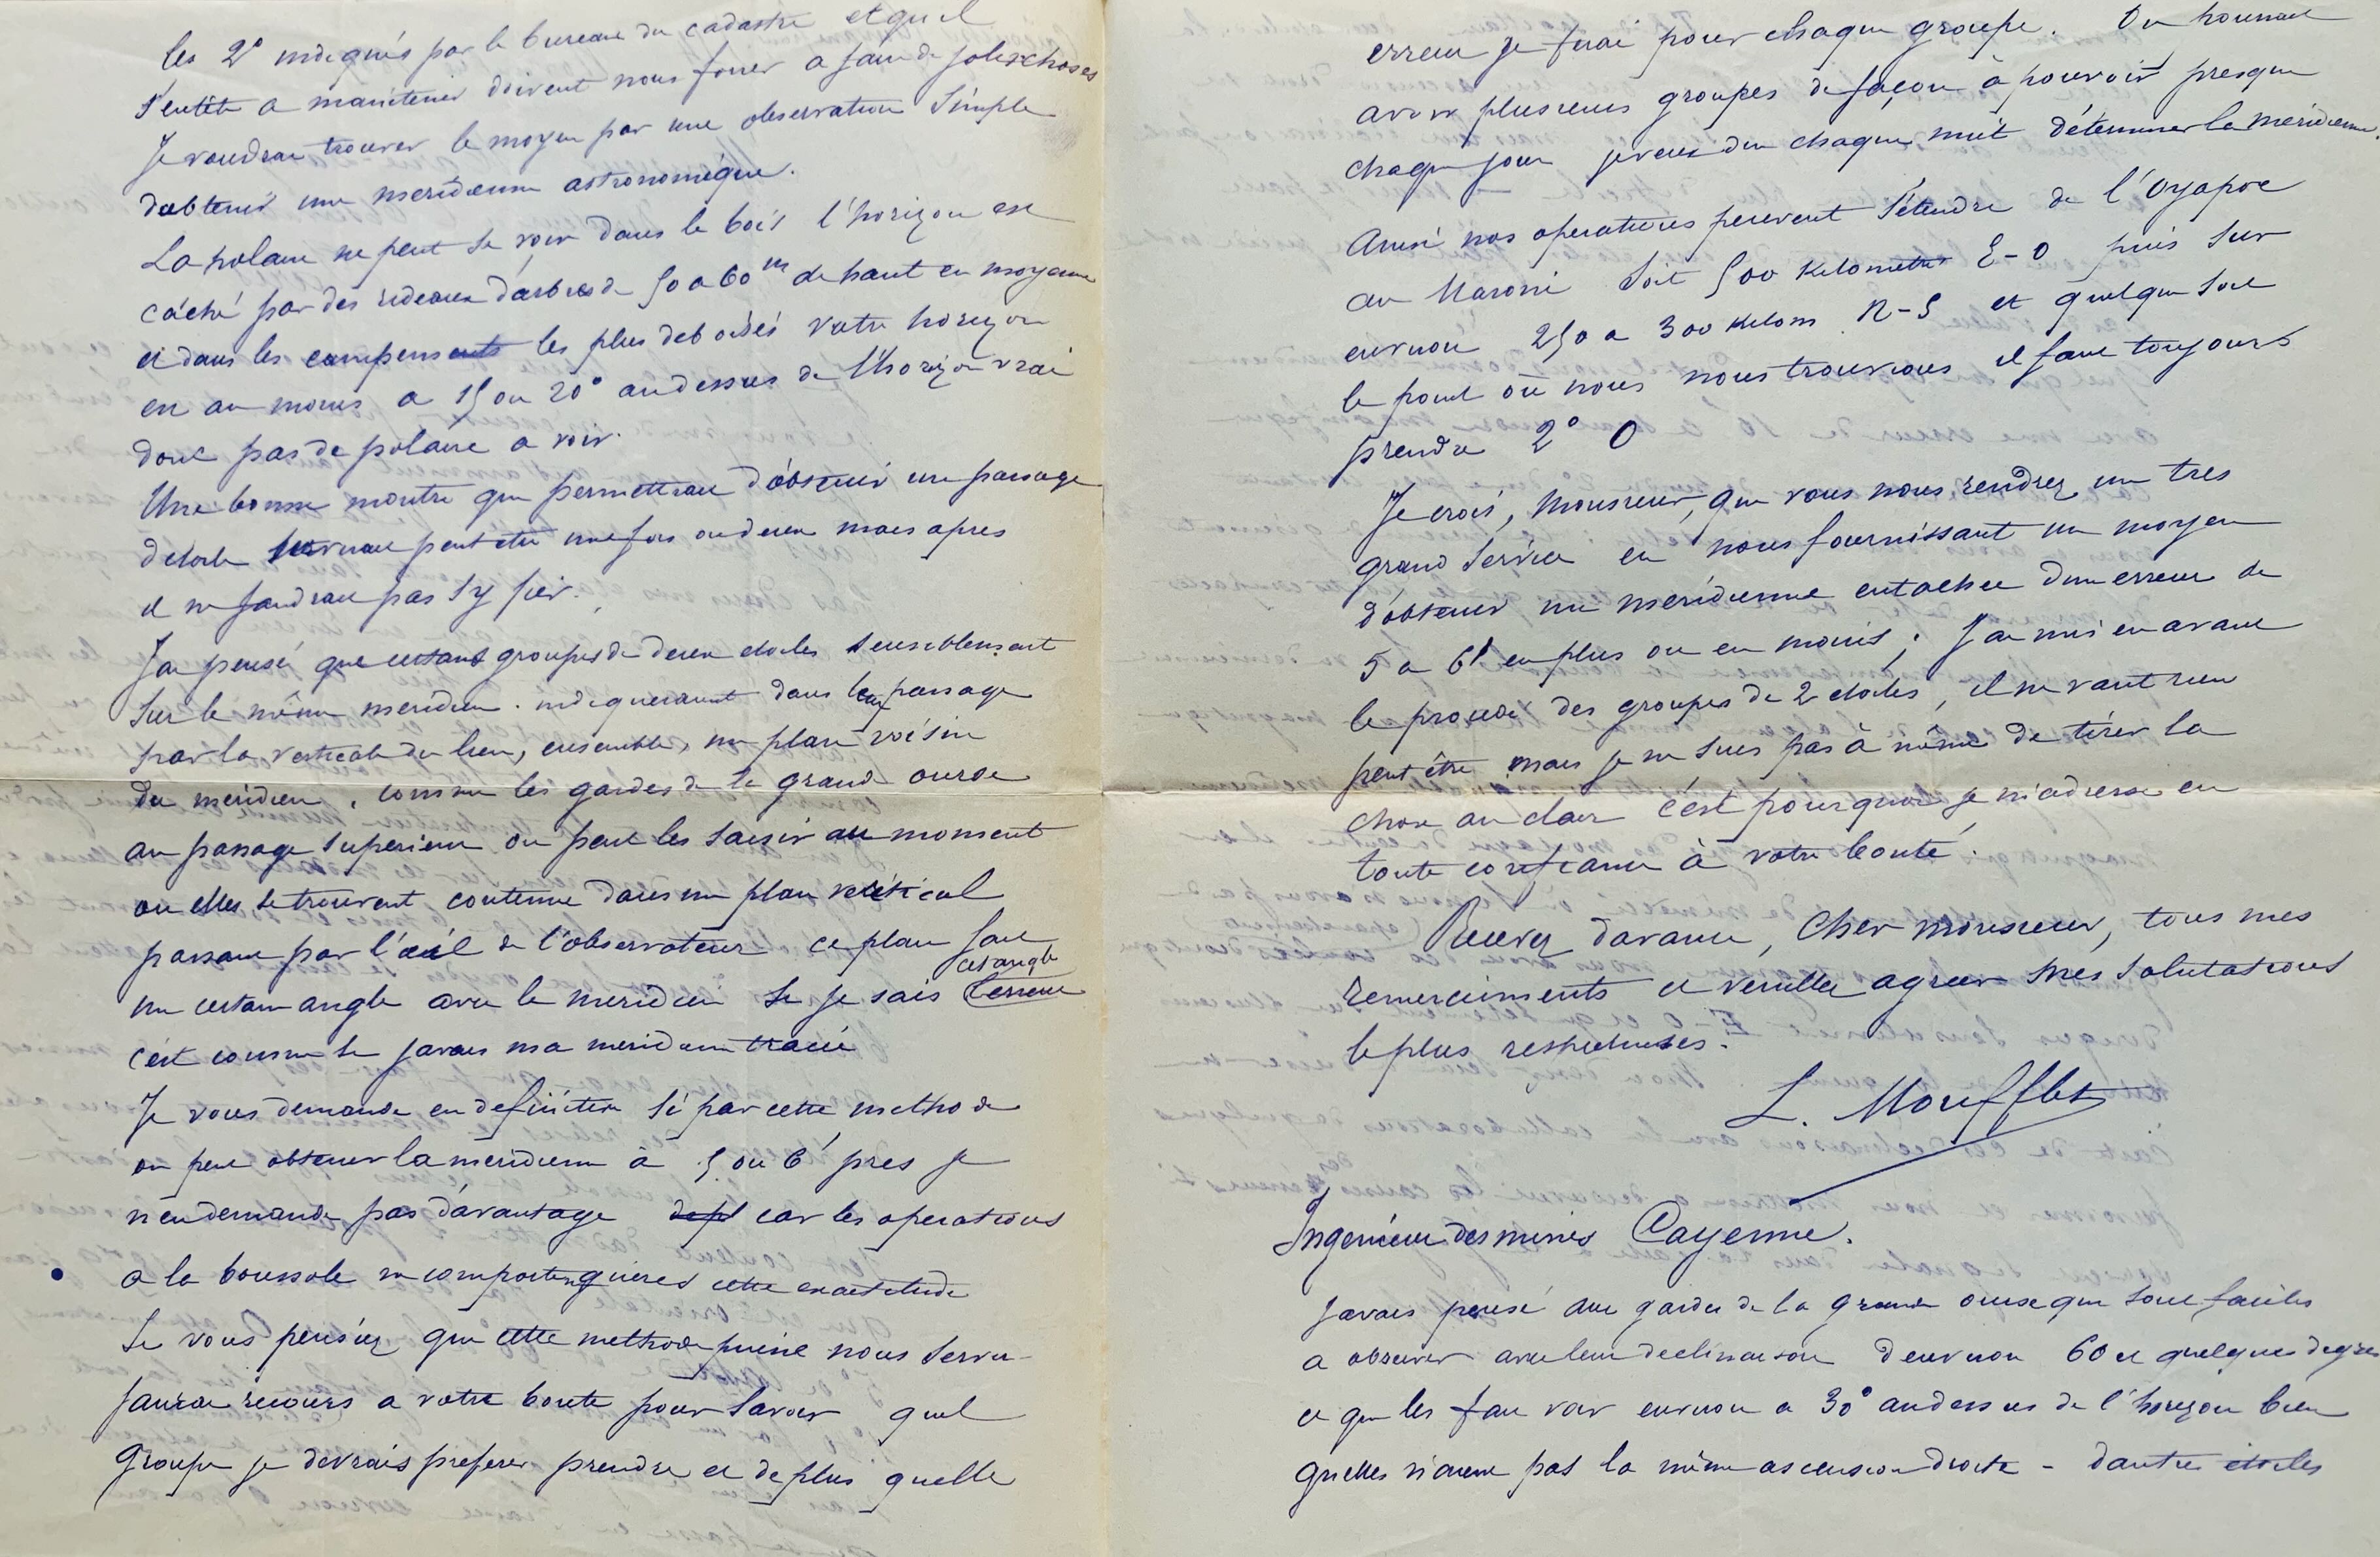 les 2° indiqués par le bureau du cadastre et qu'il
s'entête a maintenir doivent nous forcer a faire de jolies choses
Je voudrais trouver le moyen par une observation simple
d'obtenir une meridienne astronomique.
La polaire ne peut se voir dans le bois l'horizon est
caché par des rideaux d'arbres de 50 a 60 m de haut en moyenne
et dans les campements les plus deboisés votre horizon
est au moins a 15 ou 20° au dessus de l'horizon vrai
donc pas de polaire a voir.
Une bonne montre qui permettrait d'obtenir un passage
detoile servirait peut etre une fois ou deux mais apres
il ne faudrait pas s'y fier.
J'ai pensé que certains groupes de deux etoiles sensiblement
sur le même meridien indiqueraient dans leur passage
par la verticale du lieu, ensemble, un plan voisin
du meridien, comme les gardes de la grande ourse
au passage superieur on peut les saisir au moment
ou elles se trouvent contenue dans un plan vertical
passant par l'œil de l'observateur ce plan fait
un certain angle avec le meridien si je sais cet angle l'erreur
c'est comme si j'avais ma meridienne tracée
Je vous demande en definitive si par cette methode
on peut obtenir la meridienne à 5 ou 6' pres je
n'en demande pas d'avantage car les operations
a la boussole ne comportent guères cette exactitude
Si vous pensiez que cette methode puisse nous servir
j'aurai recours a votre bonté pour savoir quel
groupe je devrais preferer prendre et de plus quelle
erreur je ferai pour chaque groupe. On pourrait
avoir plusieurs groupes de façon à pouvoir presque
chaque jour je veux dire chaque nuit déterminer la méridienne.
Ainsi nos operations peuvent s'étendre de l'Oyapoc
au Maroni soit 500 kilometres E-O puis sur
environ 250 a 300 kilom N-S et quelque soit
le point où nous nous trouvions il faut toujours
prendre 2° O
Je crois, Monsieur, que vous nous rendrez un tres
grand service en nous fournissant un moyen
d'obtenir une meridienne entachée d'une erreur de
5 a 6' en plus ou en moins; J'ai mis en avant
le procédé des groupes de 2 etoiles, il ne vaut rien
peut être mais je ne suis pas à même de tirer la
chose au clair c'est pourquoi je m'adresse en
toute confiance à votre bonté.
Recevez d'avance, Cher monsieur, tous mes
remerciments et veuillez agréer mes salutations
le plus respectueuses.
L. Moufflet
Ingenieur des mines Cayenne.
J'avais pensé aux gardes de la grande ourse qui sont faciles
a observer avec leur declinaison d'environ 60 et quelques degrés
ce qui les fait voir environ a 30° au dessus de l'horizon bien
qu'elles n'aient pas la même ascension droite - d'autres étoiles